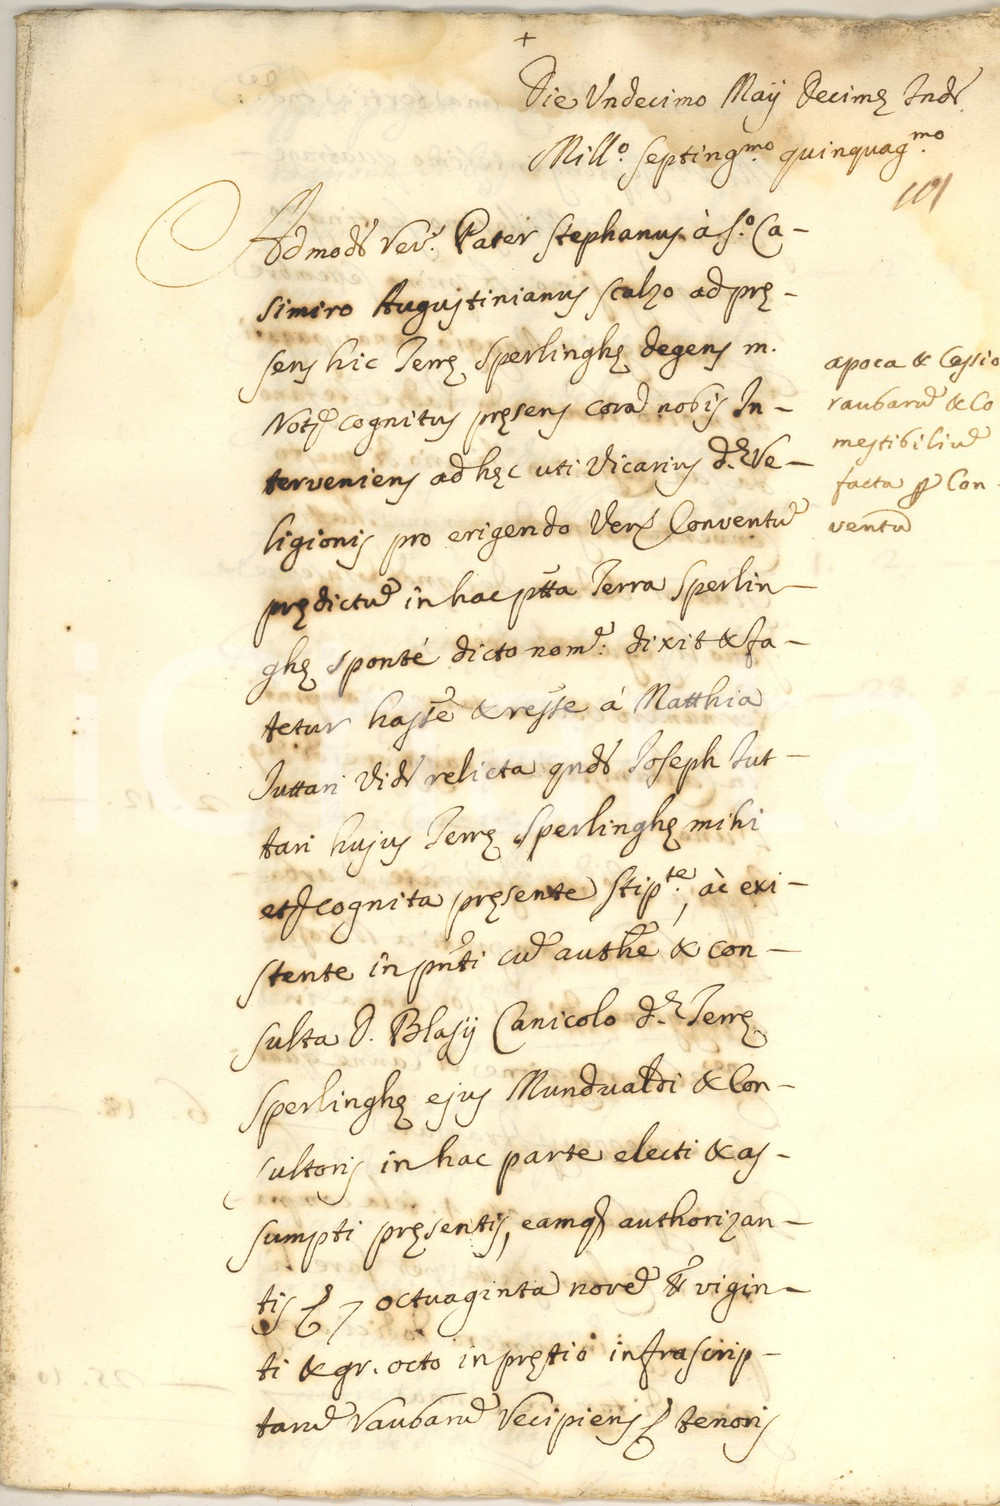 +
Die Undecimo Maij Decimę Indis
Mill.º septing.mo quinquag.mo
101
Admodũ Rev.s Pater Stephanus à S.º Ca-
simiro Augustinianus scalzo ad prę-
sens hic Terrę Sperlinghę degens m.
Not.º cognitus pręsens corã nobis In-
terveniens ad hęc uti Vicarius d.ę Re-
ligionis pro erigendo Ven. Conventũ
prędictũ in hac ptta Terra Sperlin-
ghę sponté dicto nom.e dixit & fa-
tetur hasse & resse á Matthia
Juttari Vid. relicta qnd. Joseph Jut-
tari hujus Terrę Sperlinghę mihi
et cognita pręsente stip.te, ac exi-
stente in pnti cũ authe & con-
sulta D. Blasij Canicolo d.ę Terrę
Sperlinghę ejus Mundualdi & Con-
sultoris in hac parte electi & as-
sumpti pręsentis, eamq authorizan-
tis octuaginta novẽ tt vigin-
ti & gr. octo in prętio infrascrip-
tarũ raubarũ Recipiens tenoris
apoca & Cessio
raubarũ & Co
mestibiliũ
facta p Con-
ventũ